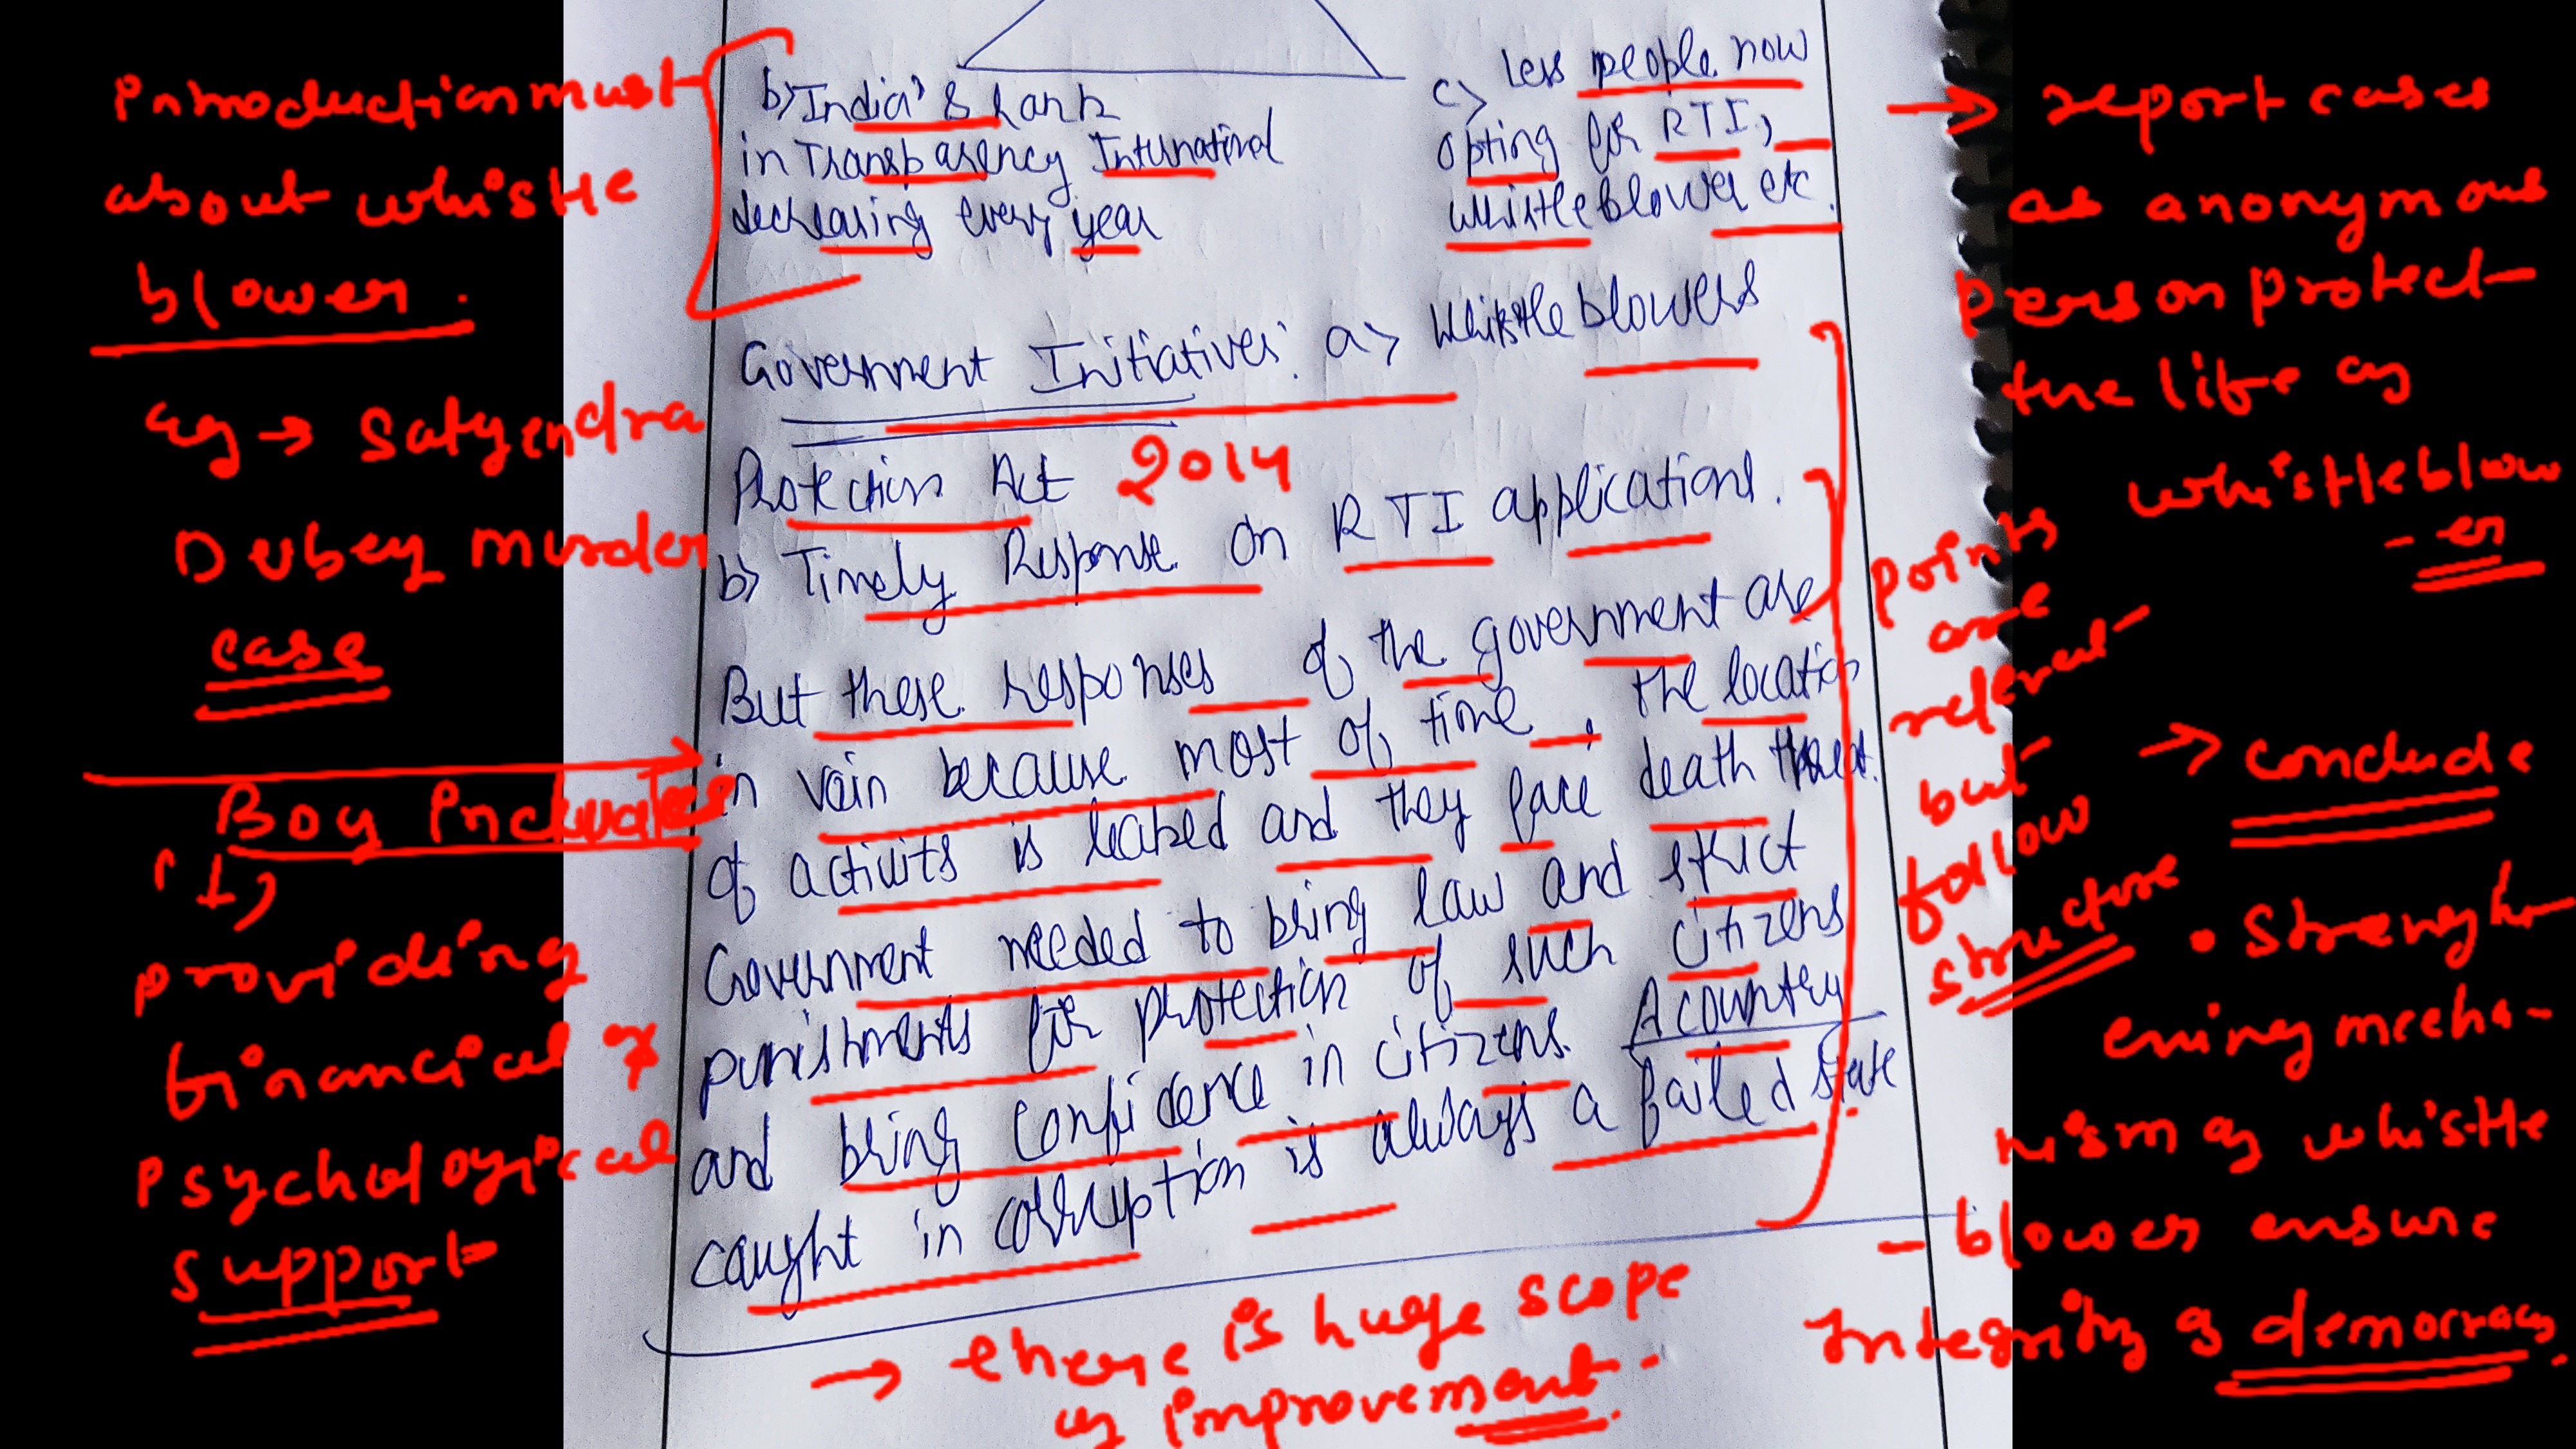 Introduction must
about whistle
blower.
eg → Satyendra
Dubey murder
case
Body includes
(1)
providing
financial &
psychological
support
b) India's rank
in Transparency International
decreasing every year
c) Less people now
opting for RTI,
whistleblower etc.
Government Initiatives: a) Whistleblowers
Protection Act 2014
b) Timely Response on RTI applications.
But these responses of the government are
in vain because most of time, the location
of activits is leaked and they face death threat.
Government needed to bring law and strict
punishments for protection of such citizens
and bring confidence in citizens. A country
caught in corruption is always a failed state
→ there is huge scope
of improvement.
→ report cases
as anonymous
person protect
the life of
whistleblow
-er
points
are
relevant
but
follow
structure
→ conclude
• Strength
ening mecha-
nism of whistle
-blower ensure
Integrity of democracy.